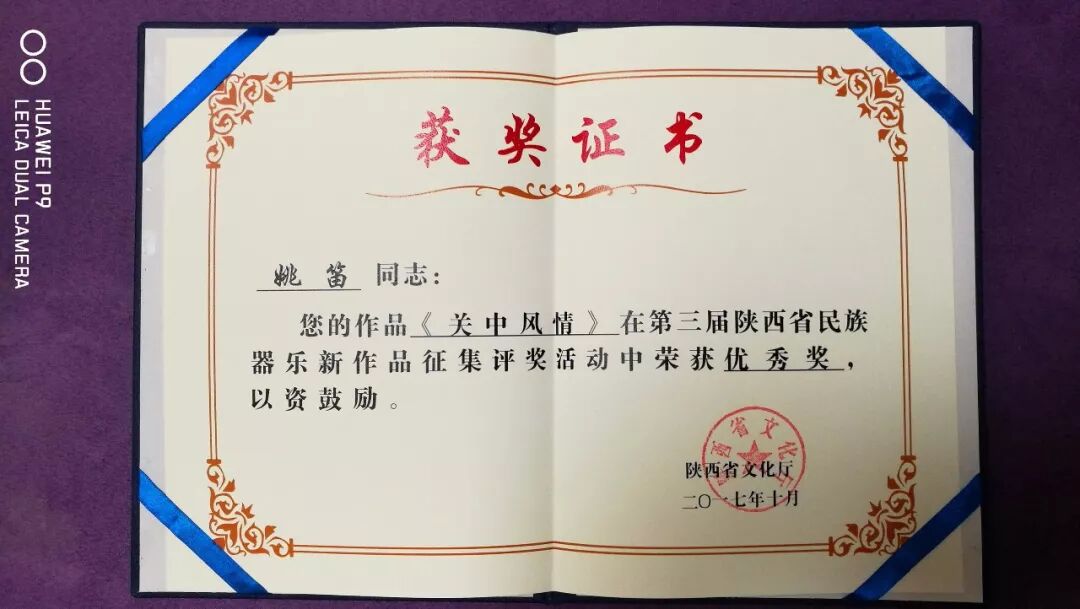 HUAWEI P9
LEICA DUAL CAMERA
获奖证书
姚笛 同志：
您的作品《关中风情》在第三届陕西省民族
器乐新作品征集评奖活动中荣获优秀奖，
以资鼓励。
陕西省文化厅
二〇一七年十月
陕西省文化厅